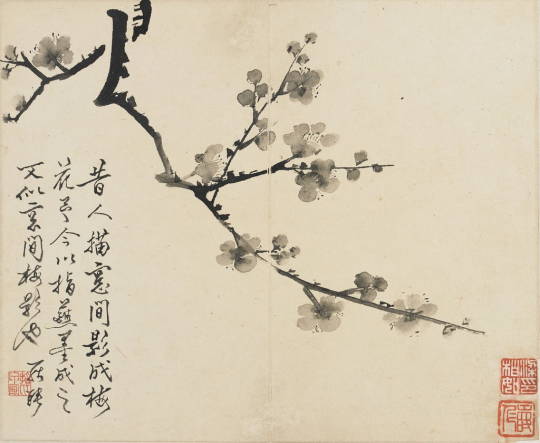 昔人描窓間影成梅
花今以指蘸墨成之
又似窓間梅影也